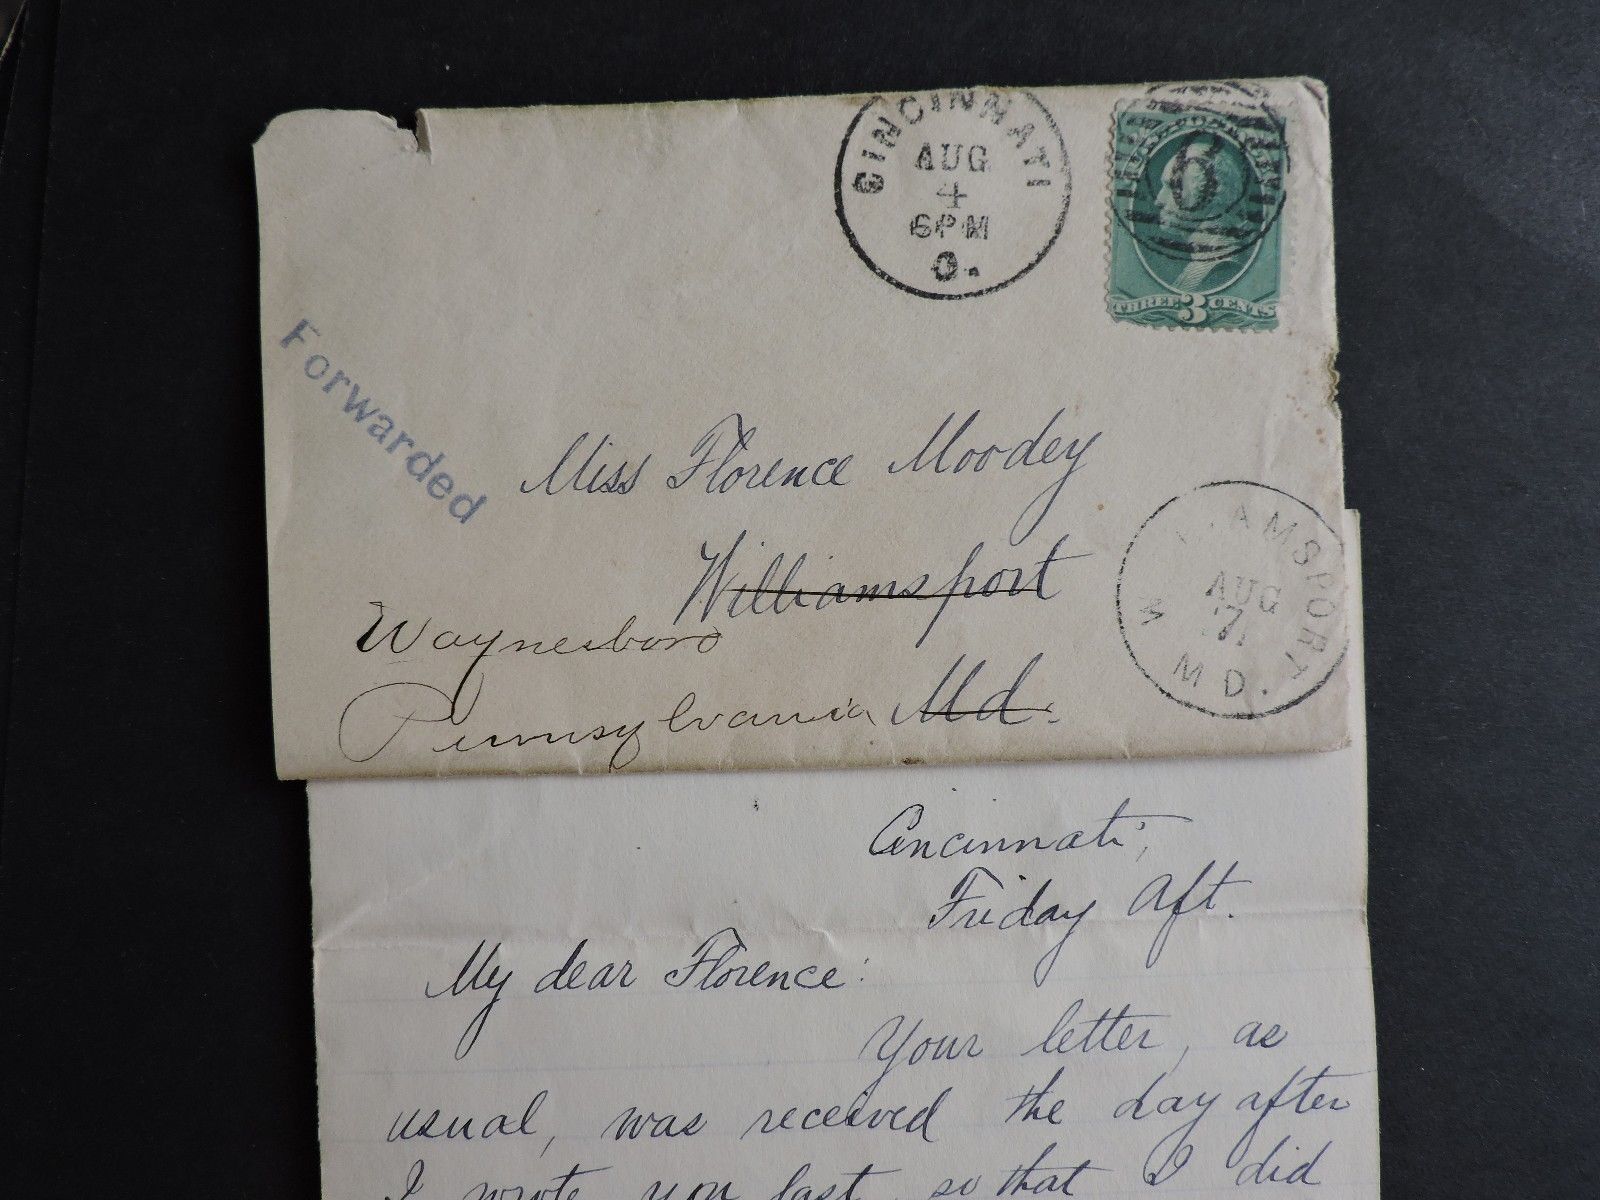 CINCINNATI
AUG
4
6PM
O.
6
THREE 3 CENTS
Forwarded
Miss Florence Moodey
Williamsport
Md.
Waynesboro
Pennsylvania
WILLIAMSPORT
AUG
7
MD.
Cincinnati,
Friday Aft.
My dear Florence:
Your letter, as
usual, was received the day after
I wrote you last, so that I did